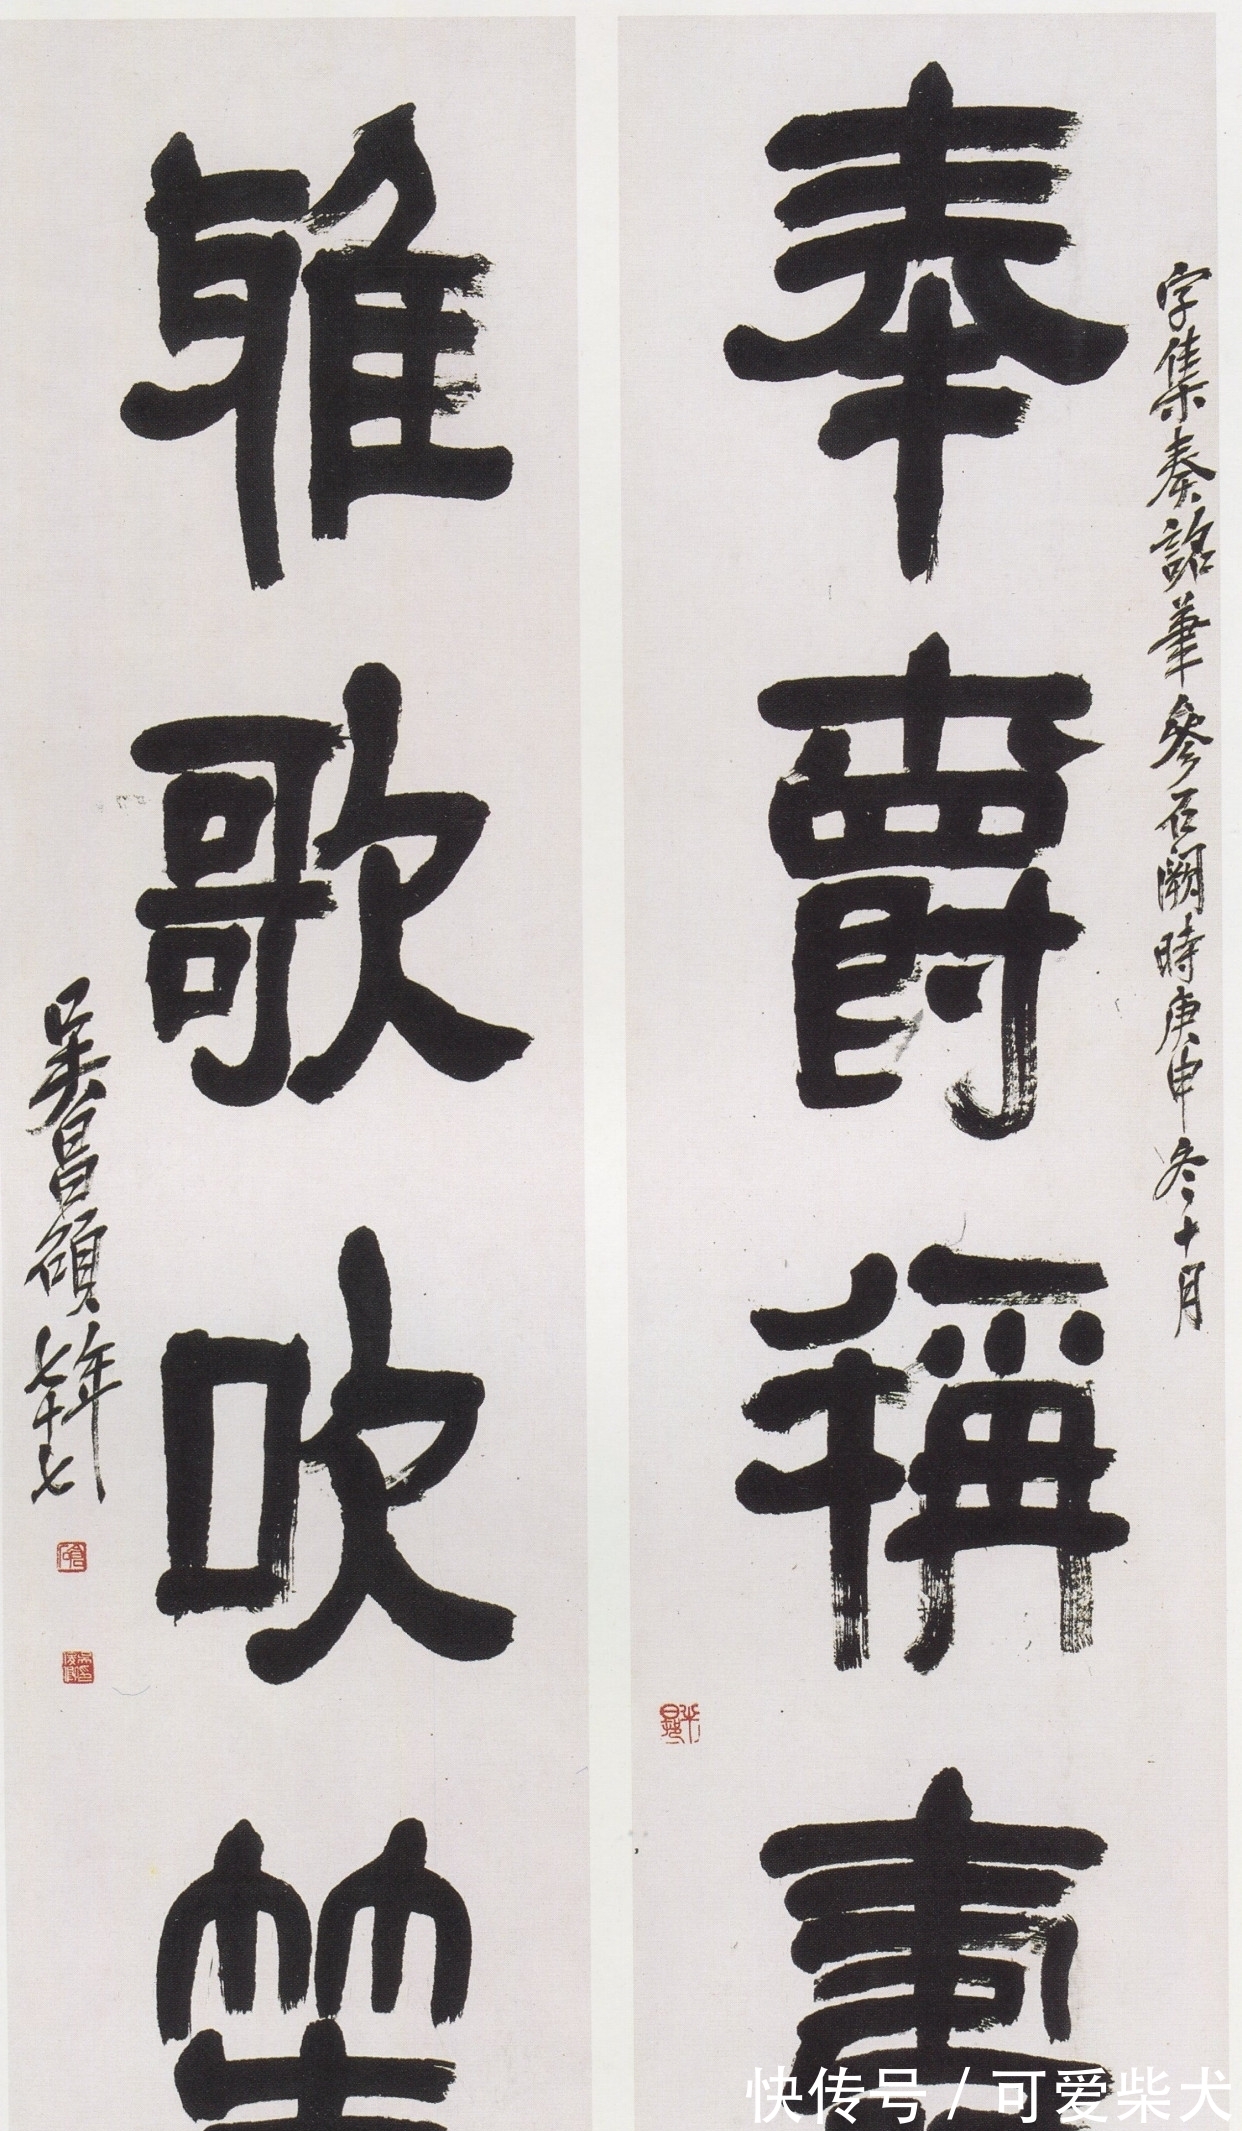 奉爵稱壽
字集奏詺筆參石闕時庚申冬十月
雅歌吹笙
吳昌碩年七十七
快传号/可爱柴犬